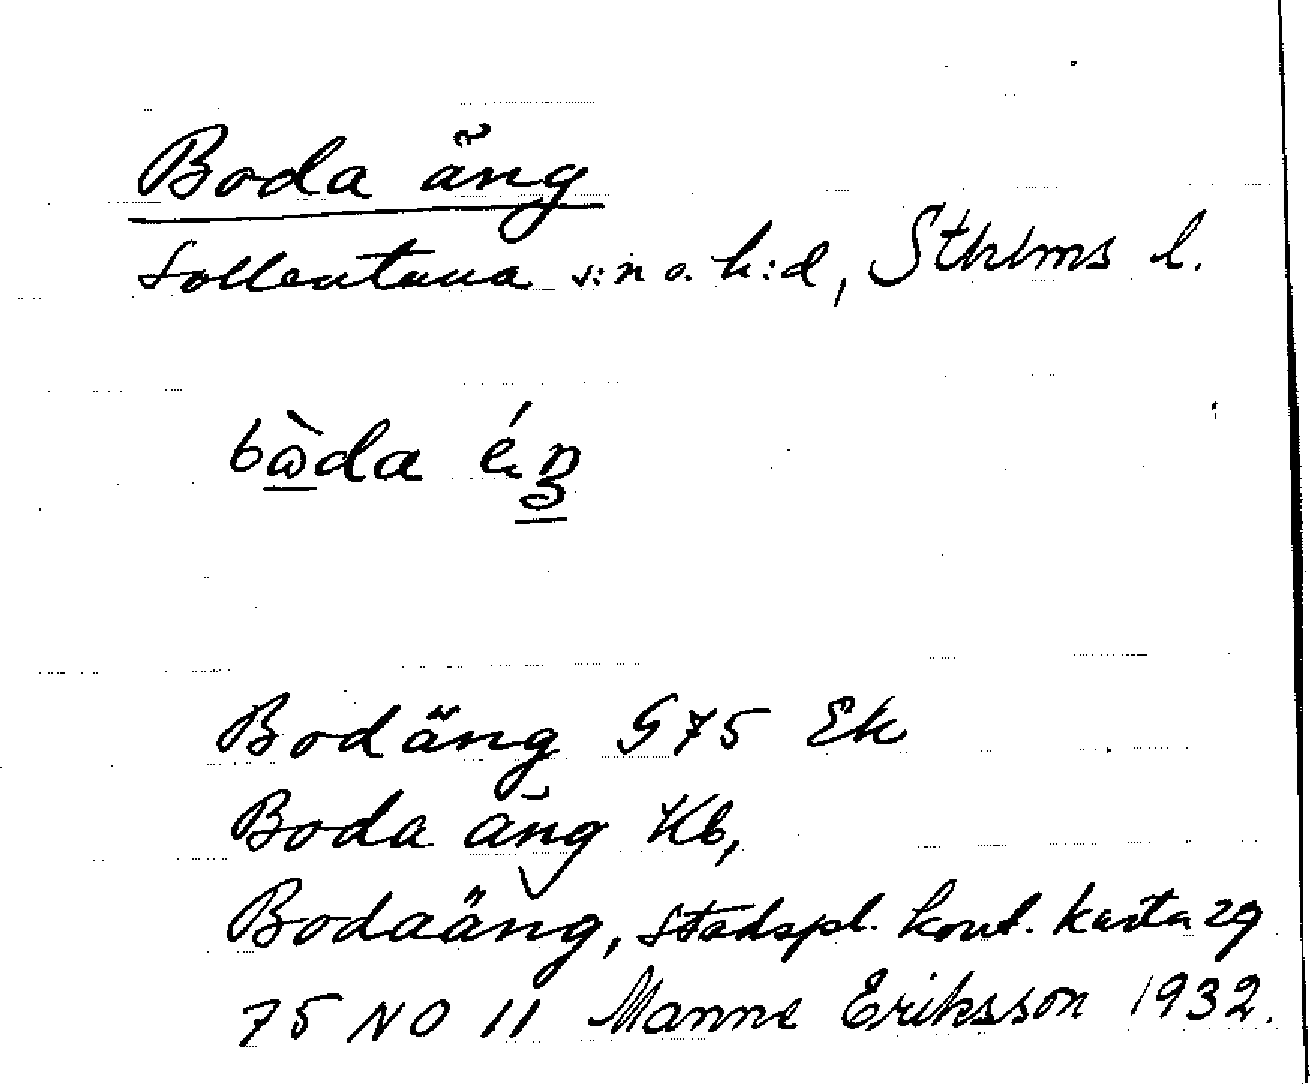 Boda äng
Sollentuna s:n o. h:d, Sthlms l.
bὼda éŋ
Bodäng G75 Ek
Boda äng Kb,
Bodaäng, Stadspl. kont. karta 29
75 NO 11 Manne Eriksson 1932.